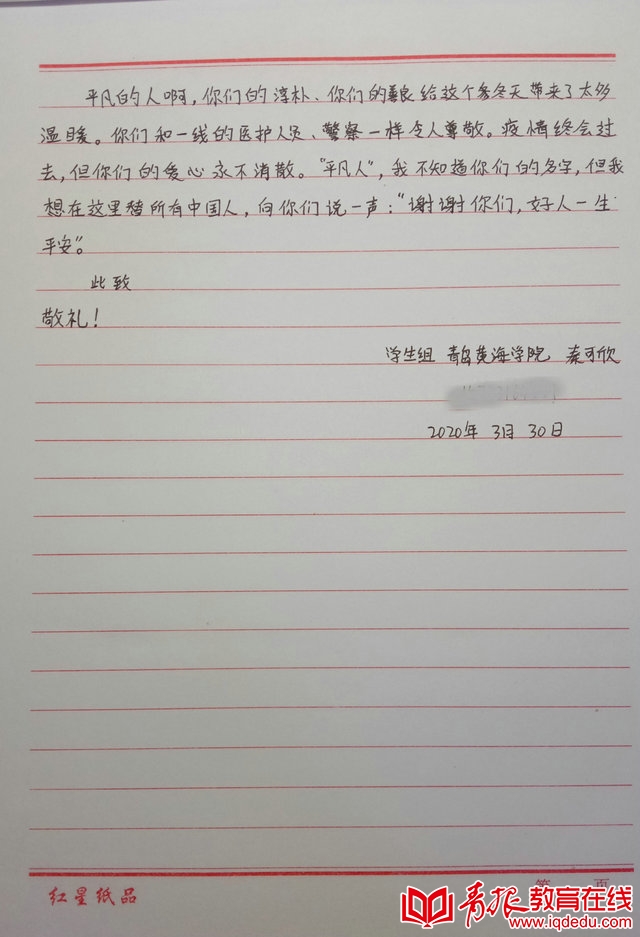 平凡的人啊，你们的淳朴、你们的善良给这个冬天带来了太多
温暖。你们和一线的医护人员、警察一样令人尊敬。疫情终会过
去，但你们的爱心永不消散。"平凡人"，我不知道你们的名字，但我
想在这里替所有中国人，向你们说一声："谢谢你们，好人一生
平安"。
此致
敬礼！
学生组 青岛黄海学院 秦可欣
2020年 3月 30日
红星纸品
第 页
青报教育在线
www.iqdedu.com